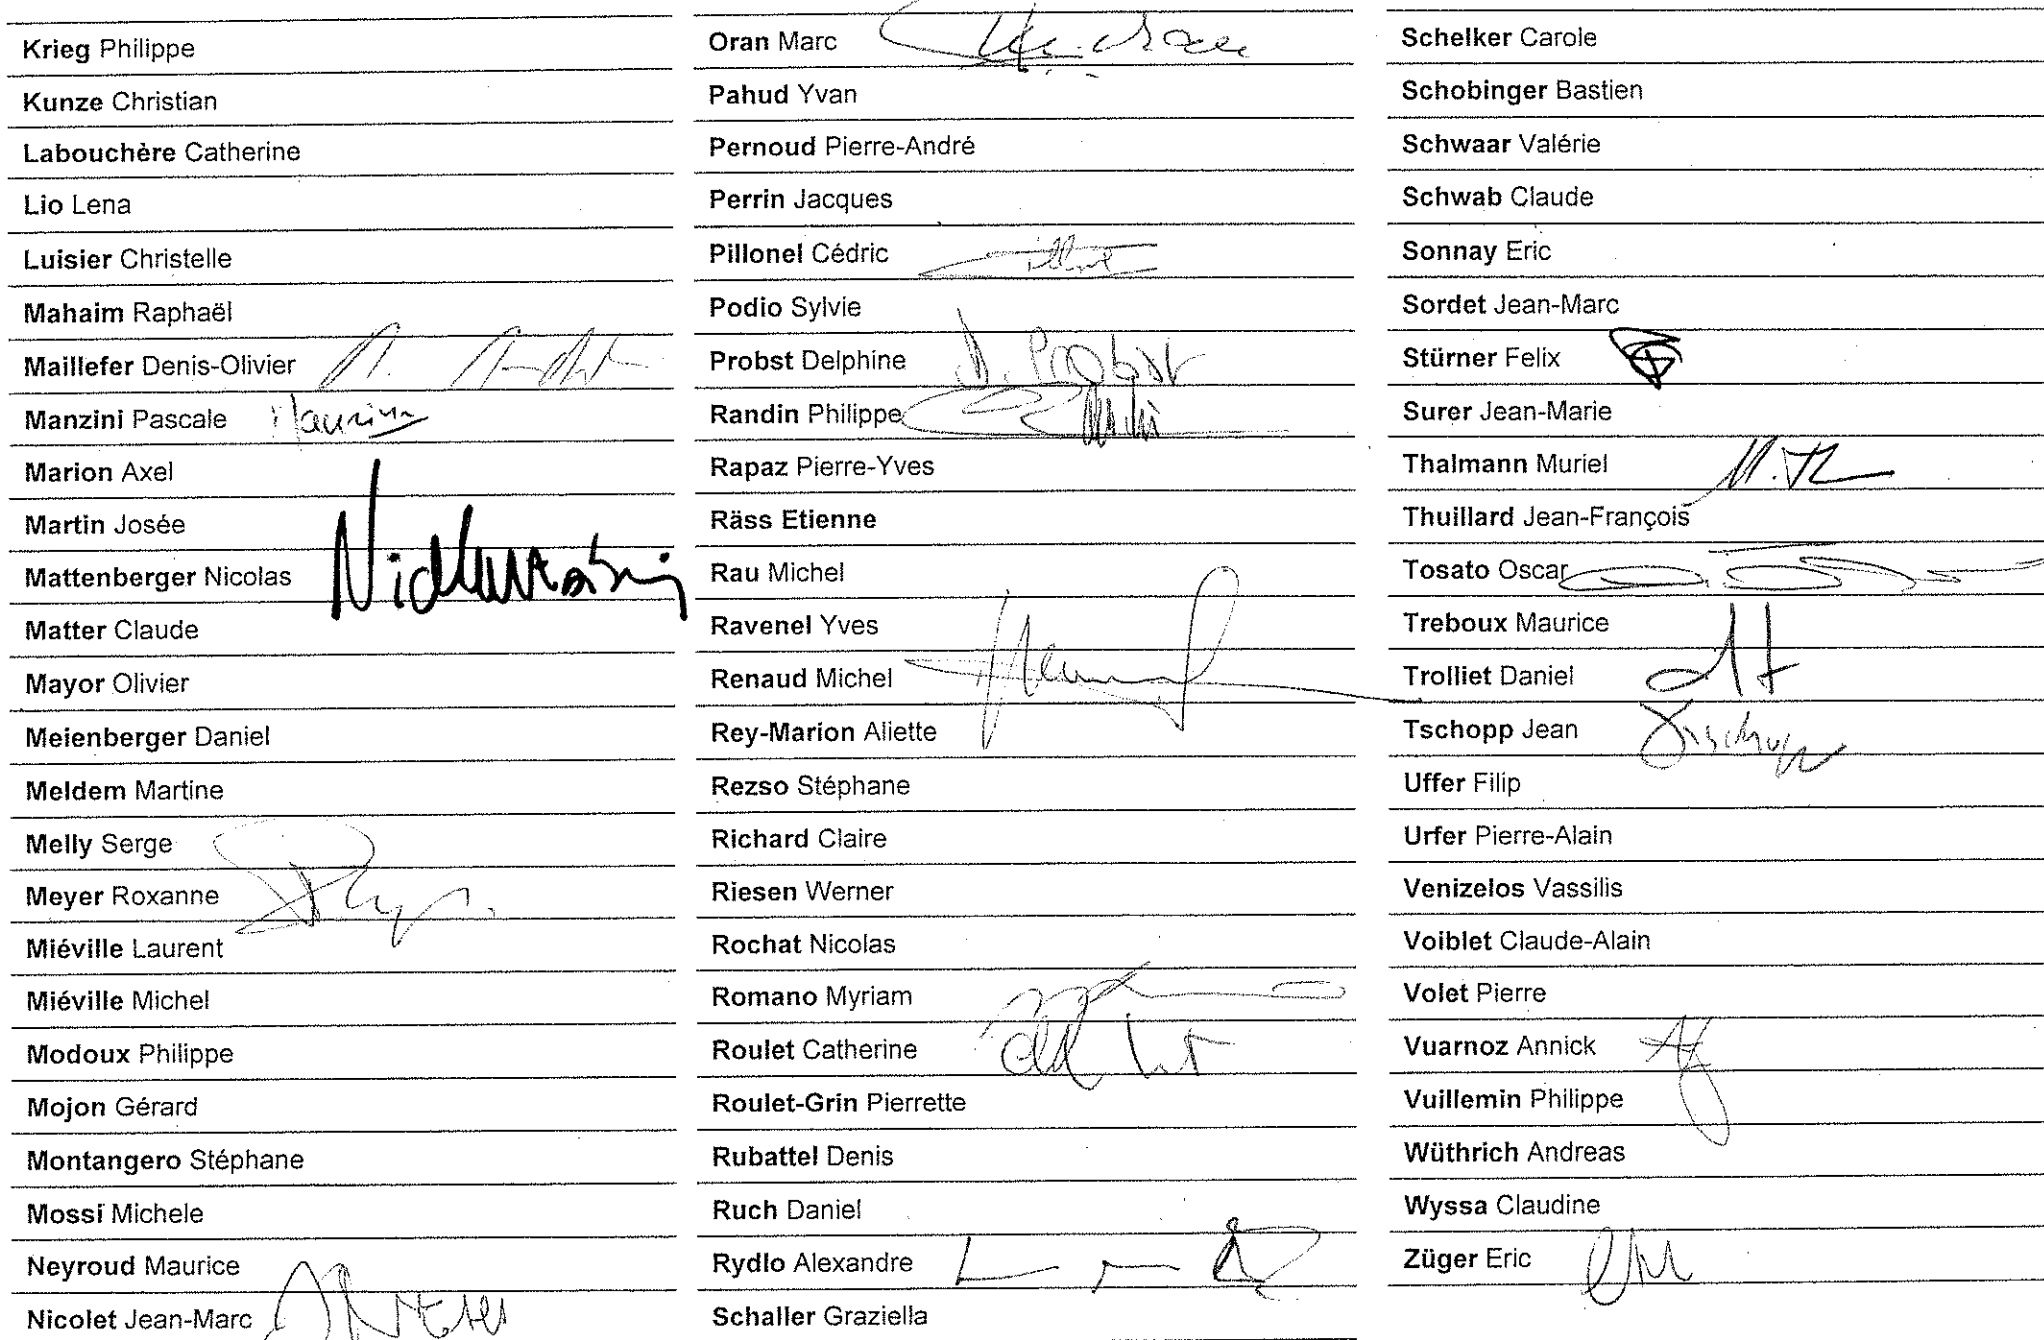 Krieg Philippe
Kunze Christian
Labouchère Catherine
Lio Lena
Luisier Christelle
Mahaim Raphaël
Maillefer Denis-Olivier
Manzini Pascale
Marion Axel
Martin Josée
Mattenberger Nicolas
Matter Claude
Mayor Olivier
Meienberger Daniel
Meldem Martine
Melly Serge
Meyer Roxanne
Miéville Laurent
Miéville Michel
Modoux Philippe
Mojon Gérard
Montangero Stéphane
Mossi Michele
Neyroud Maurice
Nicolet Jean-Marc
Oran Marc
Pahud Yvan
Pernoud Pierre-André
Perrin Jacques
Pillonel Cédric
Podio Sylvie
Probst Delphine D. Probst
Randin Philippe
Rapaz Pierre-Yves
Räss Etienne
Rau Michel
Ravenel Yves
Renaud Michel
Rey-Marion Aliette
Rezso Stéphane
Richard Claire
Riesen Werner
Rochat Nicolas
Romano Myriam
Roulet Catherine
Roulet-Grin Pierrette
Rubattel Denis
Ruch Daniel
Rydlo Alexandre
Schaller Graziella
Schelker Carole
Schobinger Bastien
Schwaar Valérie
Schwab Claude
Sonnay Eric
Sordet Jean-Marc
Stürner Felix
Surer Jean-Marie
Thalmann Muriel
Thuillard Jean-François
Tosato Oscar
Treboux Maurice
Trolliet Daniel
Tschopp Jean
Uffer Filip
Urfer Pierre-Alain
Venizelos Vassilis
Voiblet Claude-Alain
Volet Pierre
Vuarnoz Annick
Vuillemin Philippe
Wüthrich Andreas
Wyssa Claudine
Züger Eric